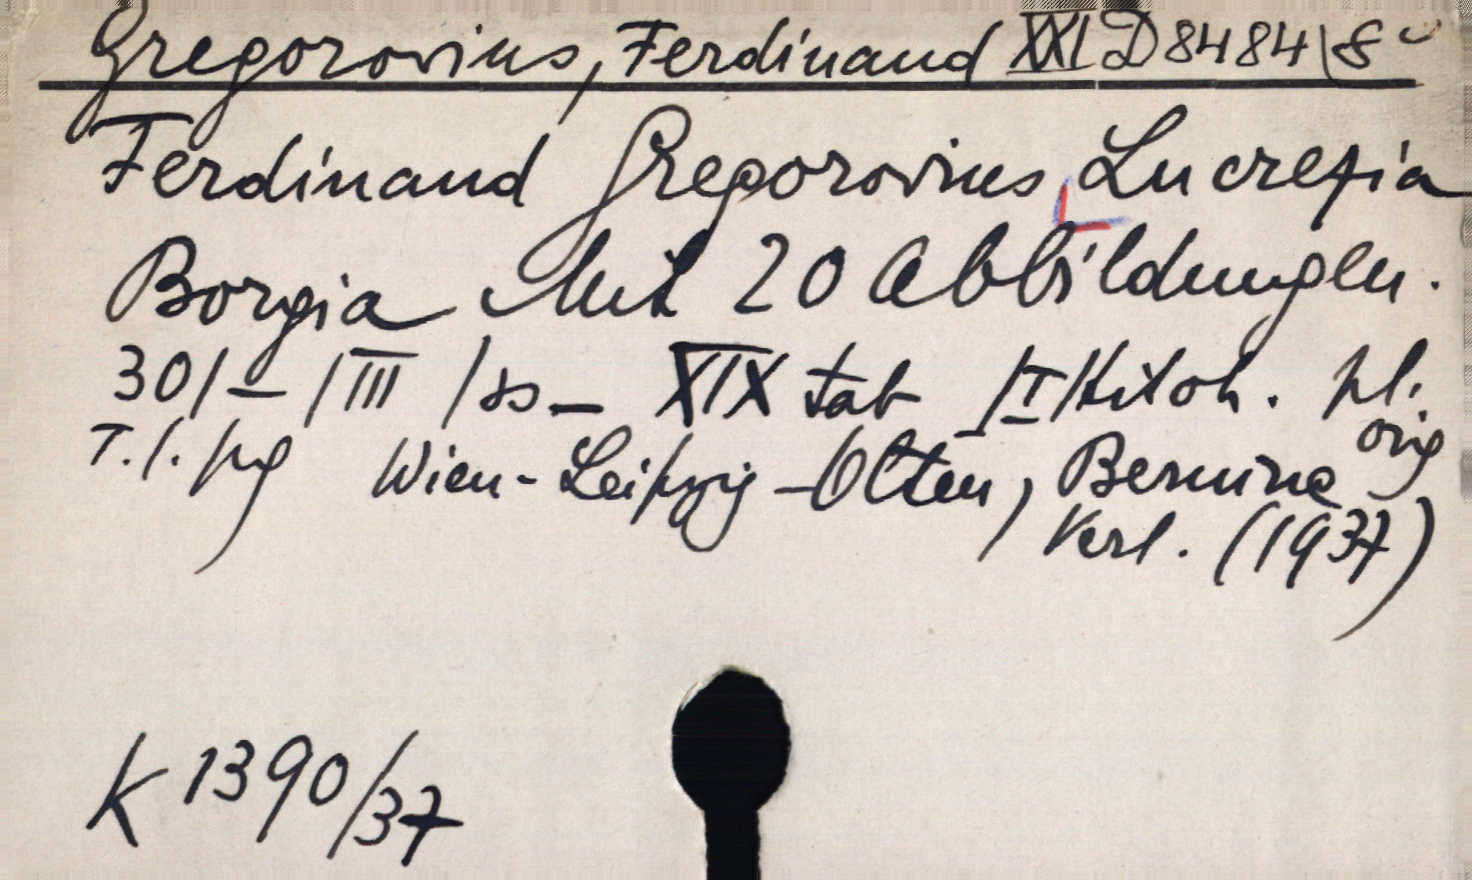 Gregorovius, Ferdinand XXI D 8484 | 8°
Ferdinand Gregorovius Lucrezia
Borgia Mit 20 Abbildungen.
301/-/III/ss- XIX tab /I/titoh. pl.
orig
T. l. pg Wien-Leipzig-Olten, Bernina
Verl. (1937)
K 1390/37